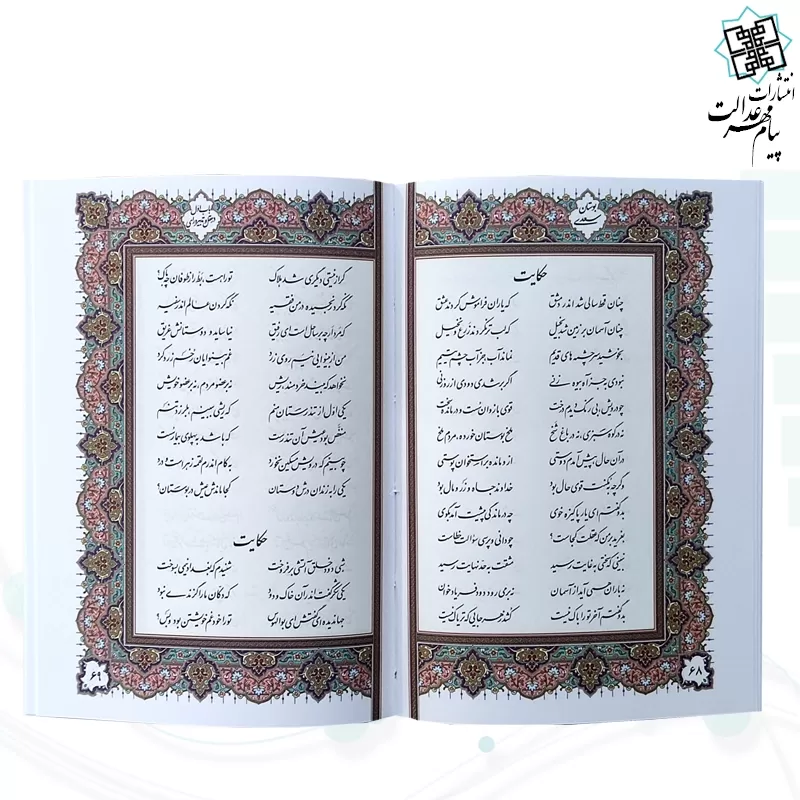 انتشارات
پیام مهر عدالت
بوستان
سعدی
حکایت
چنان قحط سالی شد اندر دمشق که یاران فراموش کردند عشق
چنان آسمان بر زمین شد بخیل که لب تر نکردند زرع و نخیل
بخوشید سرچشمه های قدیم نماند آب جز آب چشم یتیم
نبودی بجز آه بیوه زنی اگر برشدی دودی از روزنی
چو درویش بی رنگ دیدم درخت قوی بازوان سست و درمانده سخت
نه در کوه سبزی، نه در باغ شخ ملخ بوستان خورده، مردم ملخ
در آن حال پیش آمدم دوستی از او مانده بر استخوان پوستی
وگرچه به مکنت قوی حال بود خداوند جاه و زر و مال بود
بدو گفتم ای یار پاکیزه خوی چه درماندگی پیشت آمد بگوی
بغرید بر من که عقلت کجاست؟ چو دانی و پرسی سؤالت خطاست
نبینی که سختی به غایت رسید مشقت به حد نهایت رسید
نه باران همی آید از آسمان نه بر می رود دود فریادخوان
بدو گفتم آخر تو را باک نیست کشد زهر جایی که تریاک نیست
۶۸
باب اول
در عدل و تدبیر و رای
گر از نیستی دیگری شد هلاک تو را هست، بط را ز طوفان چه باک؟
نگه کرد رنجیده در من فقیه نگه کردن عالم اندر سفیه
که مرد ار چه بر ساحل است ای رفیق نیاساید و دوستانش غریق
من از بینوایی نیم روی زرد غم بینوایان رخم زرد کرد
نخواهد که بیند خردمند، ریش نه بر عضو مردم، نه بر عضو خویش
یکی اول از تندرستان منم که ریشی ببینم بلرزد تنم
منغص بود عیش آن تندرست که باشد به پهلوی بیمار سست
چو بینم که درویش مسکین نخورد به کام اندرم لقمه زهر است و درد
یکی را به زندان درش دوستان کجا ماندش عیش در بوستان؟
حکایت
شبی دود خلق آتشی برفروخت شنیدم که بغداد نیمی بسوخت
یکی شکر گفت اندر آن خاک و دود که دکان ما را گزندی نبود
جهاندیده ای گفتش ای بوالهوس تو را خود غم خویشتن بود و بس؟
۶۹